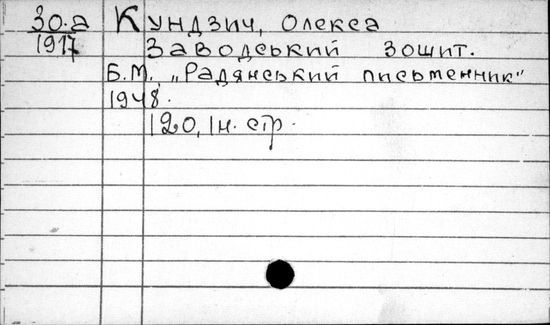 30.а Кундзич, Олекса
1917 Заводський зошит.
Б.М., „Радянський письменник"
1948.
120, 1н. стр.